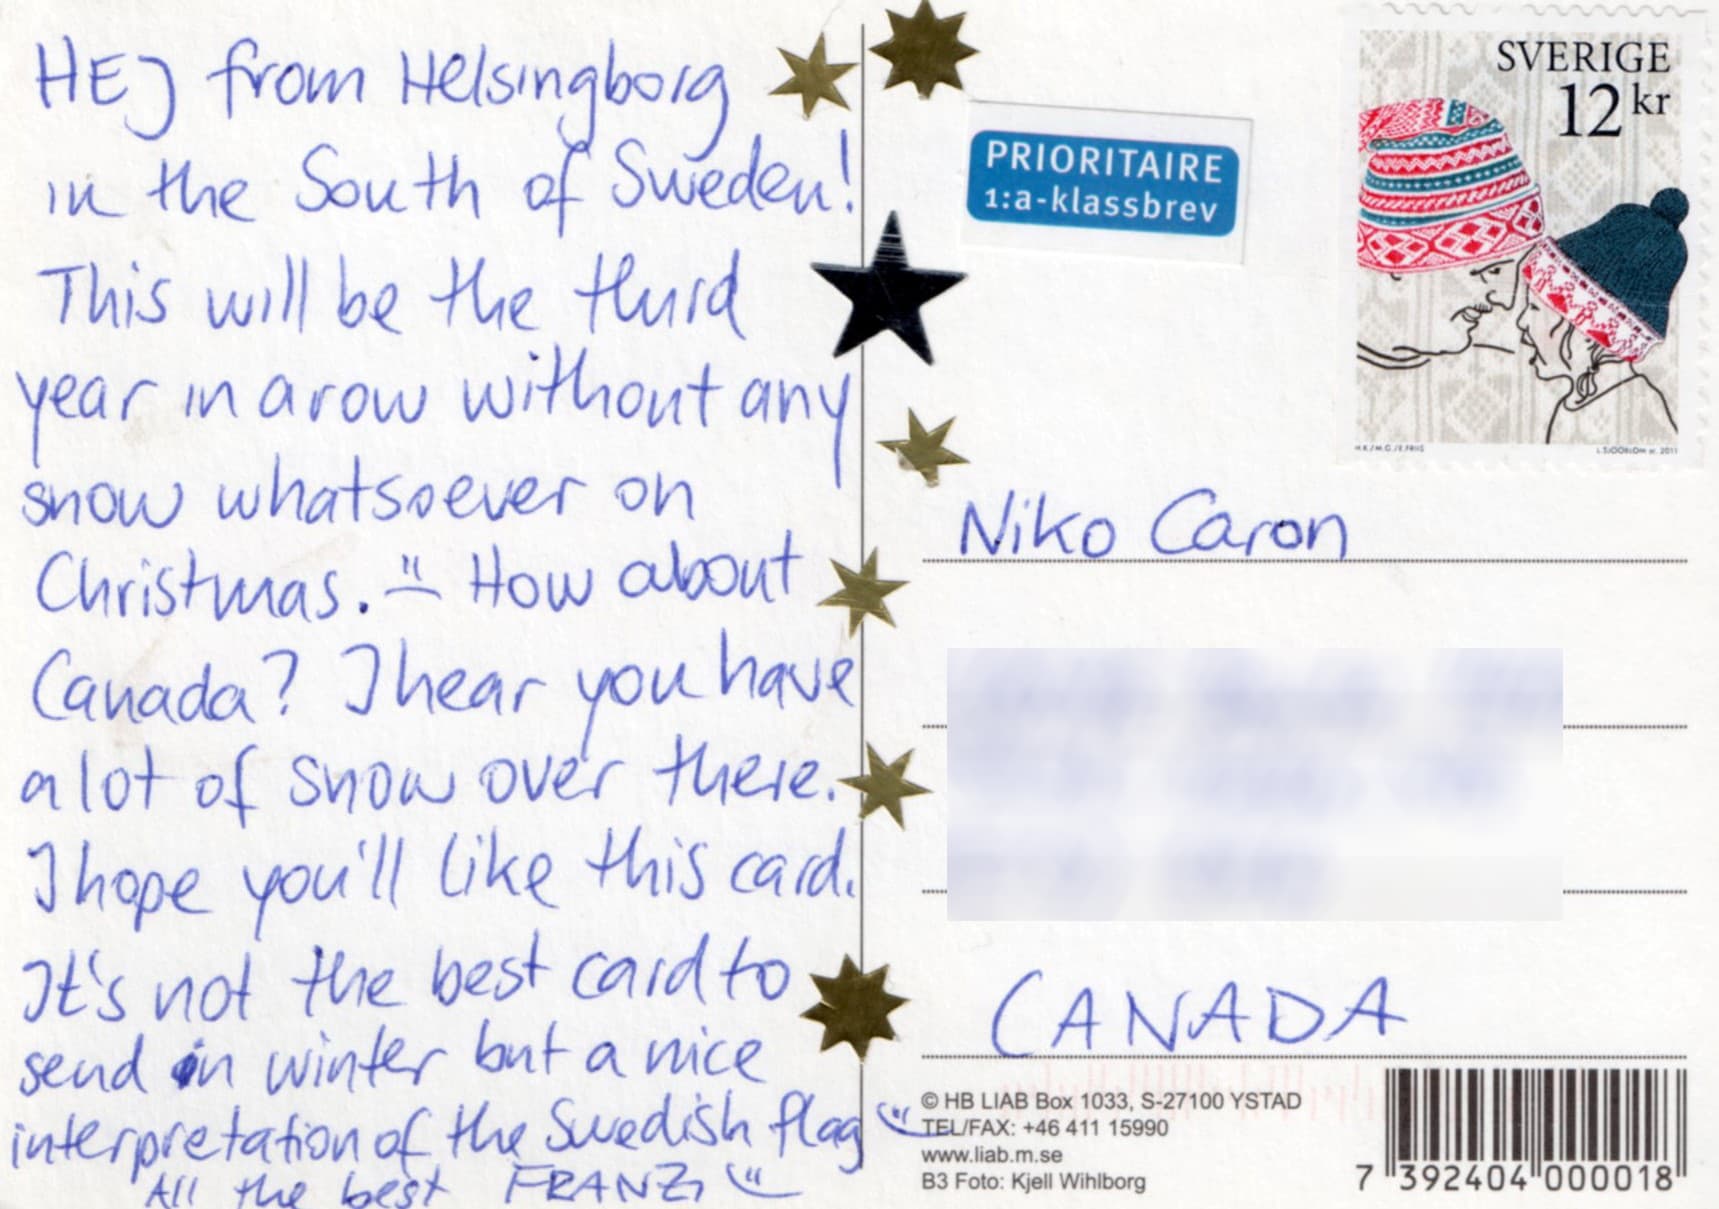 HEJ from Helsingborg
in the South of Sweden!
This will be the third
year in a row without any
snow whatsoever on
Christmas. How about
Canada? I hear you have
a lot of snow over there.
I hope you'll like this card.
It's not the best card to
send in winter but a nice
interpretation of the Swedish flag
All the best FRANZI
PRIORITAIRE
1:a-klassbrev
SVERIGE
12 kr
H.K./M.G./E.FRIIS
L.SJÖÖBLOM sc. 2011
Niko Caron
CANADA
© HB LIAB Box 1033, S-27100 YSTAD
TEL/FAX: +46 411 15990
www.liab.m.se
B3 Foto: Kjell Wihlborg
7 392404 000018